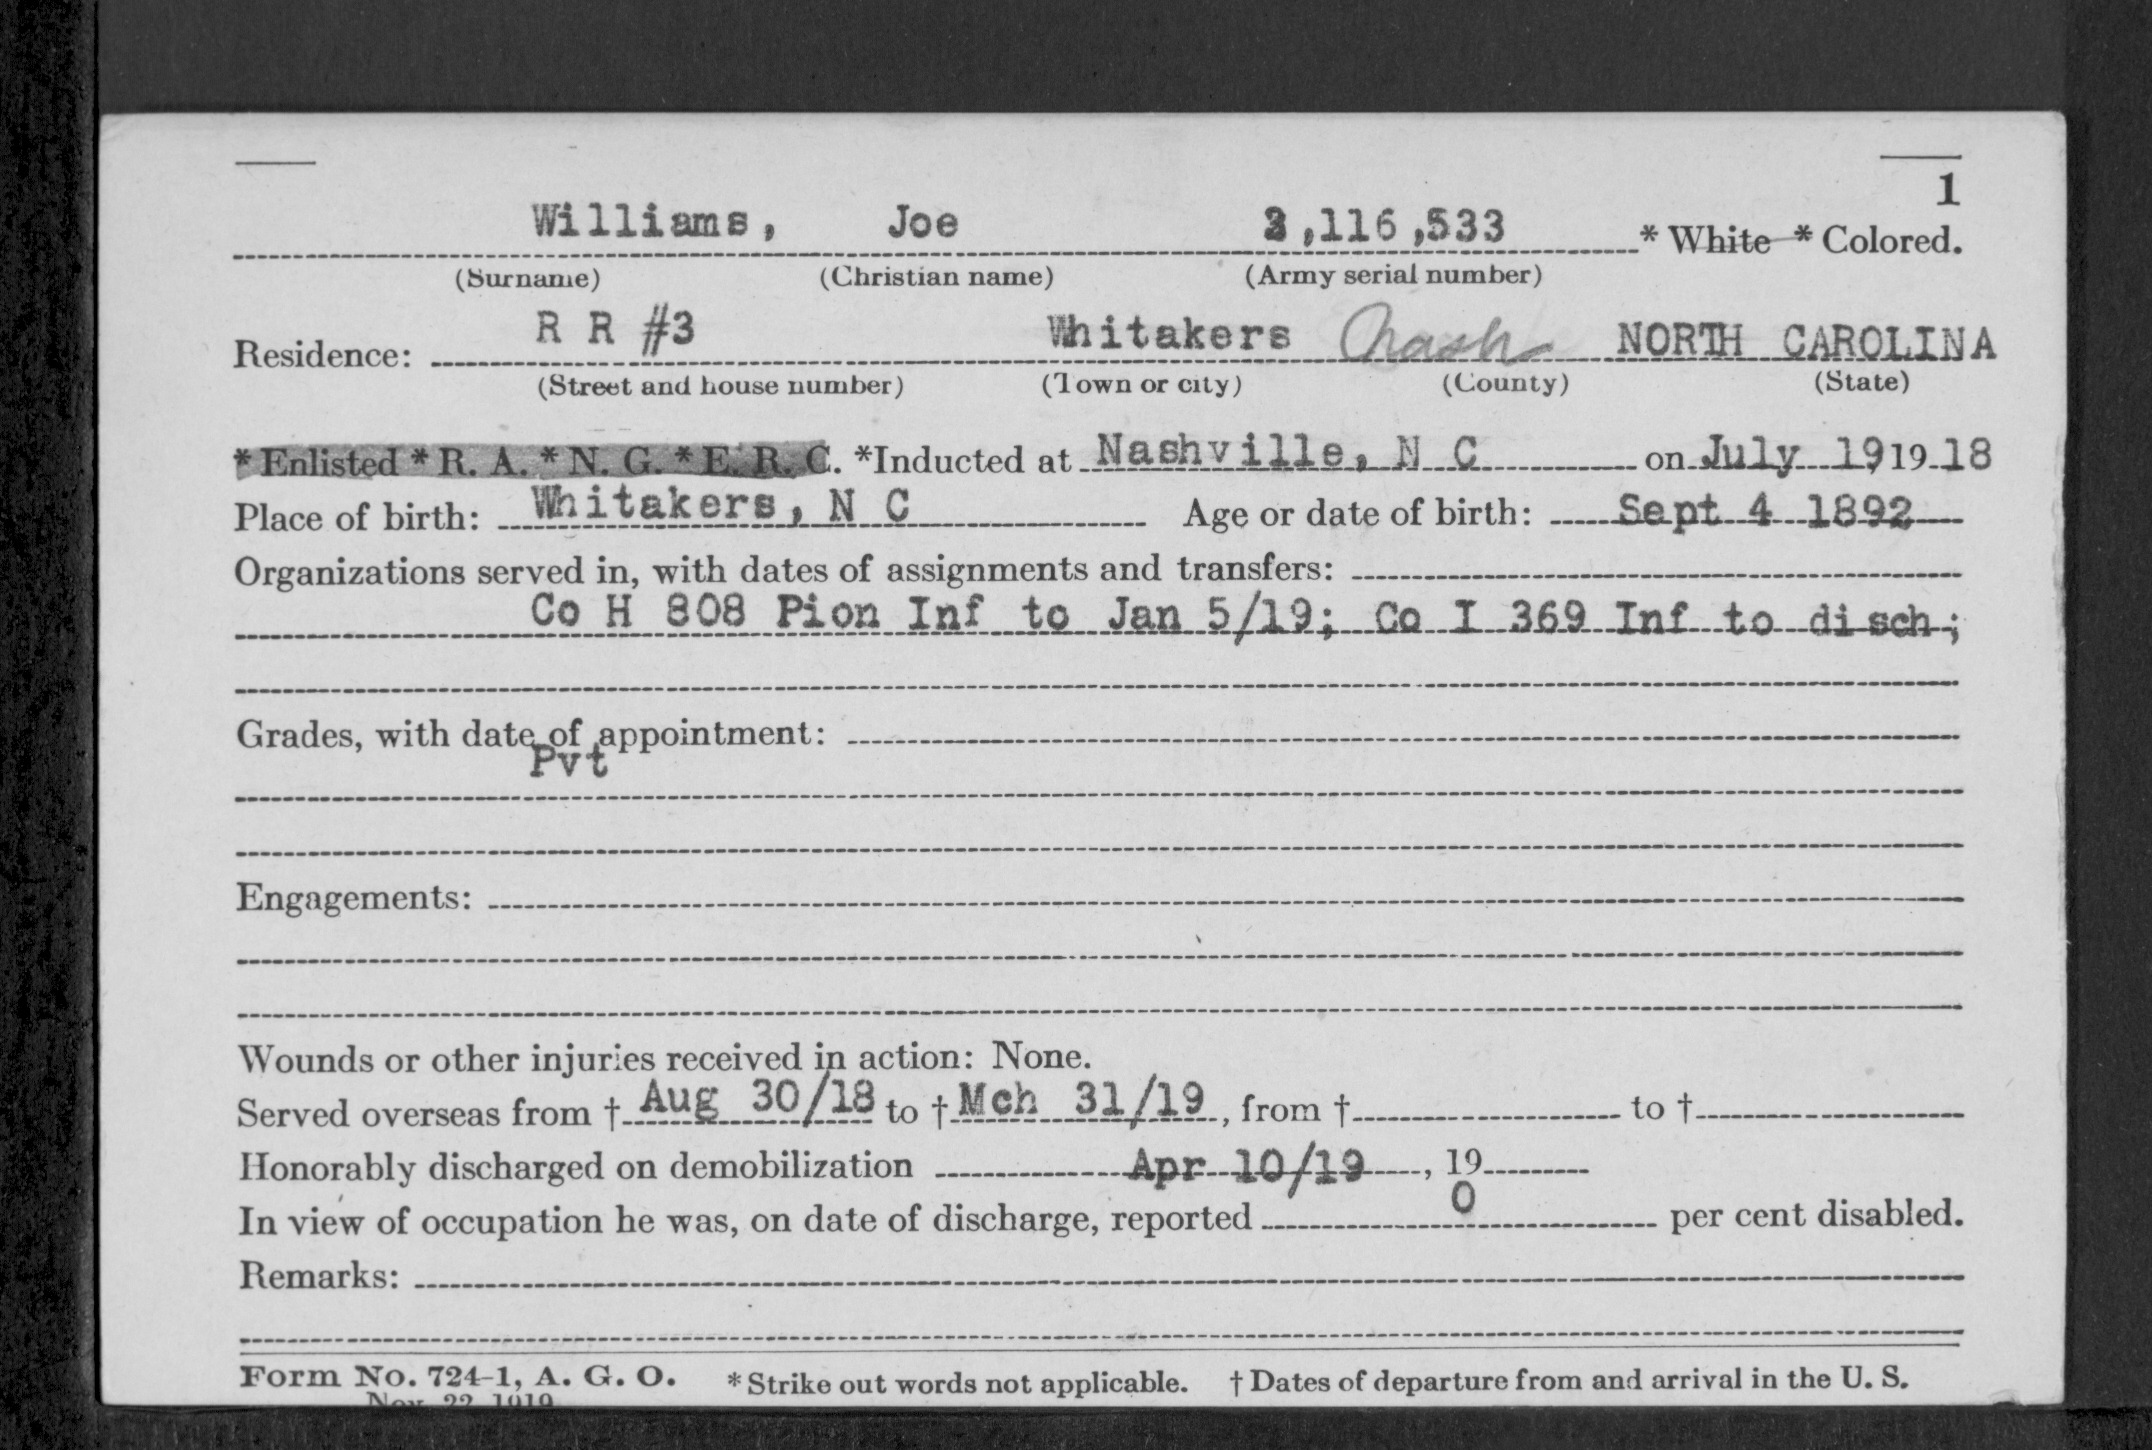 1
Williams, Joe 3,116,533 * White * Colored.
(Surname) (Christian name) (Army serial number)
Residence: R R #3 Whitakers Nash NORTH CAROLINA
(Street and house number) (Town or city) (County) (State)
* Enlisted * R. A. * N. G. * E. R. C. *Inducted at Nashville, N C on July 19, 19 18
Place of birth: Whitakers, N C Age or date of birth: Sept 4 1892
Organizations served in, with dates of assignments and transfers:
Co H 808 Pion Inf to Jan 5/19; Co I 369 Inf to disch;
Grades, with date of appointment:
Pvt
Engagements:
Wounds or other injuries received in action: None.
Served overseas from † Aug 30/18 to † Mch 31/19, from † to †
Honorably discharged on demobilization Apr 10/19, 19
In view of occupation he was, on date of discharge, reported 0 per cent disabled.
Remarks:
Form No. 724-1, A. G. O. * Strike out words not applicable. † Dates of departure from and arrival in the U. S.
Nov. 22, 1919